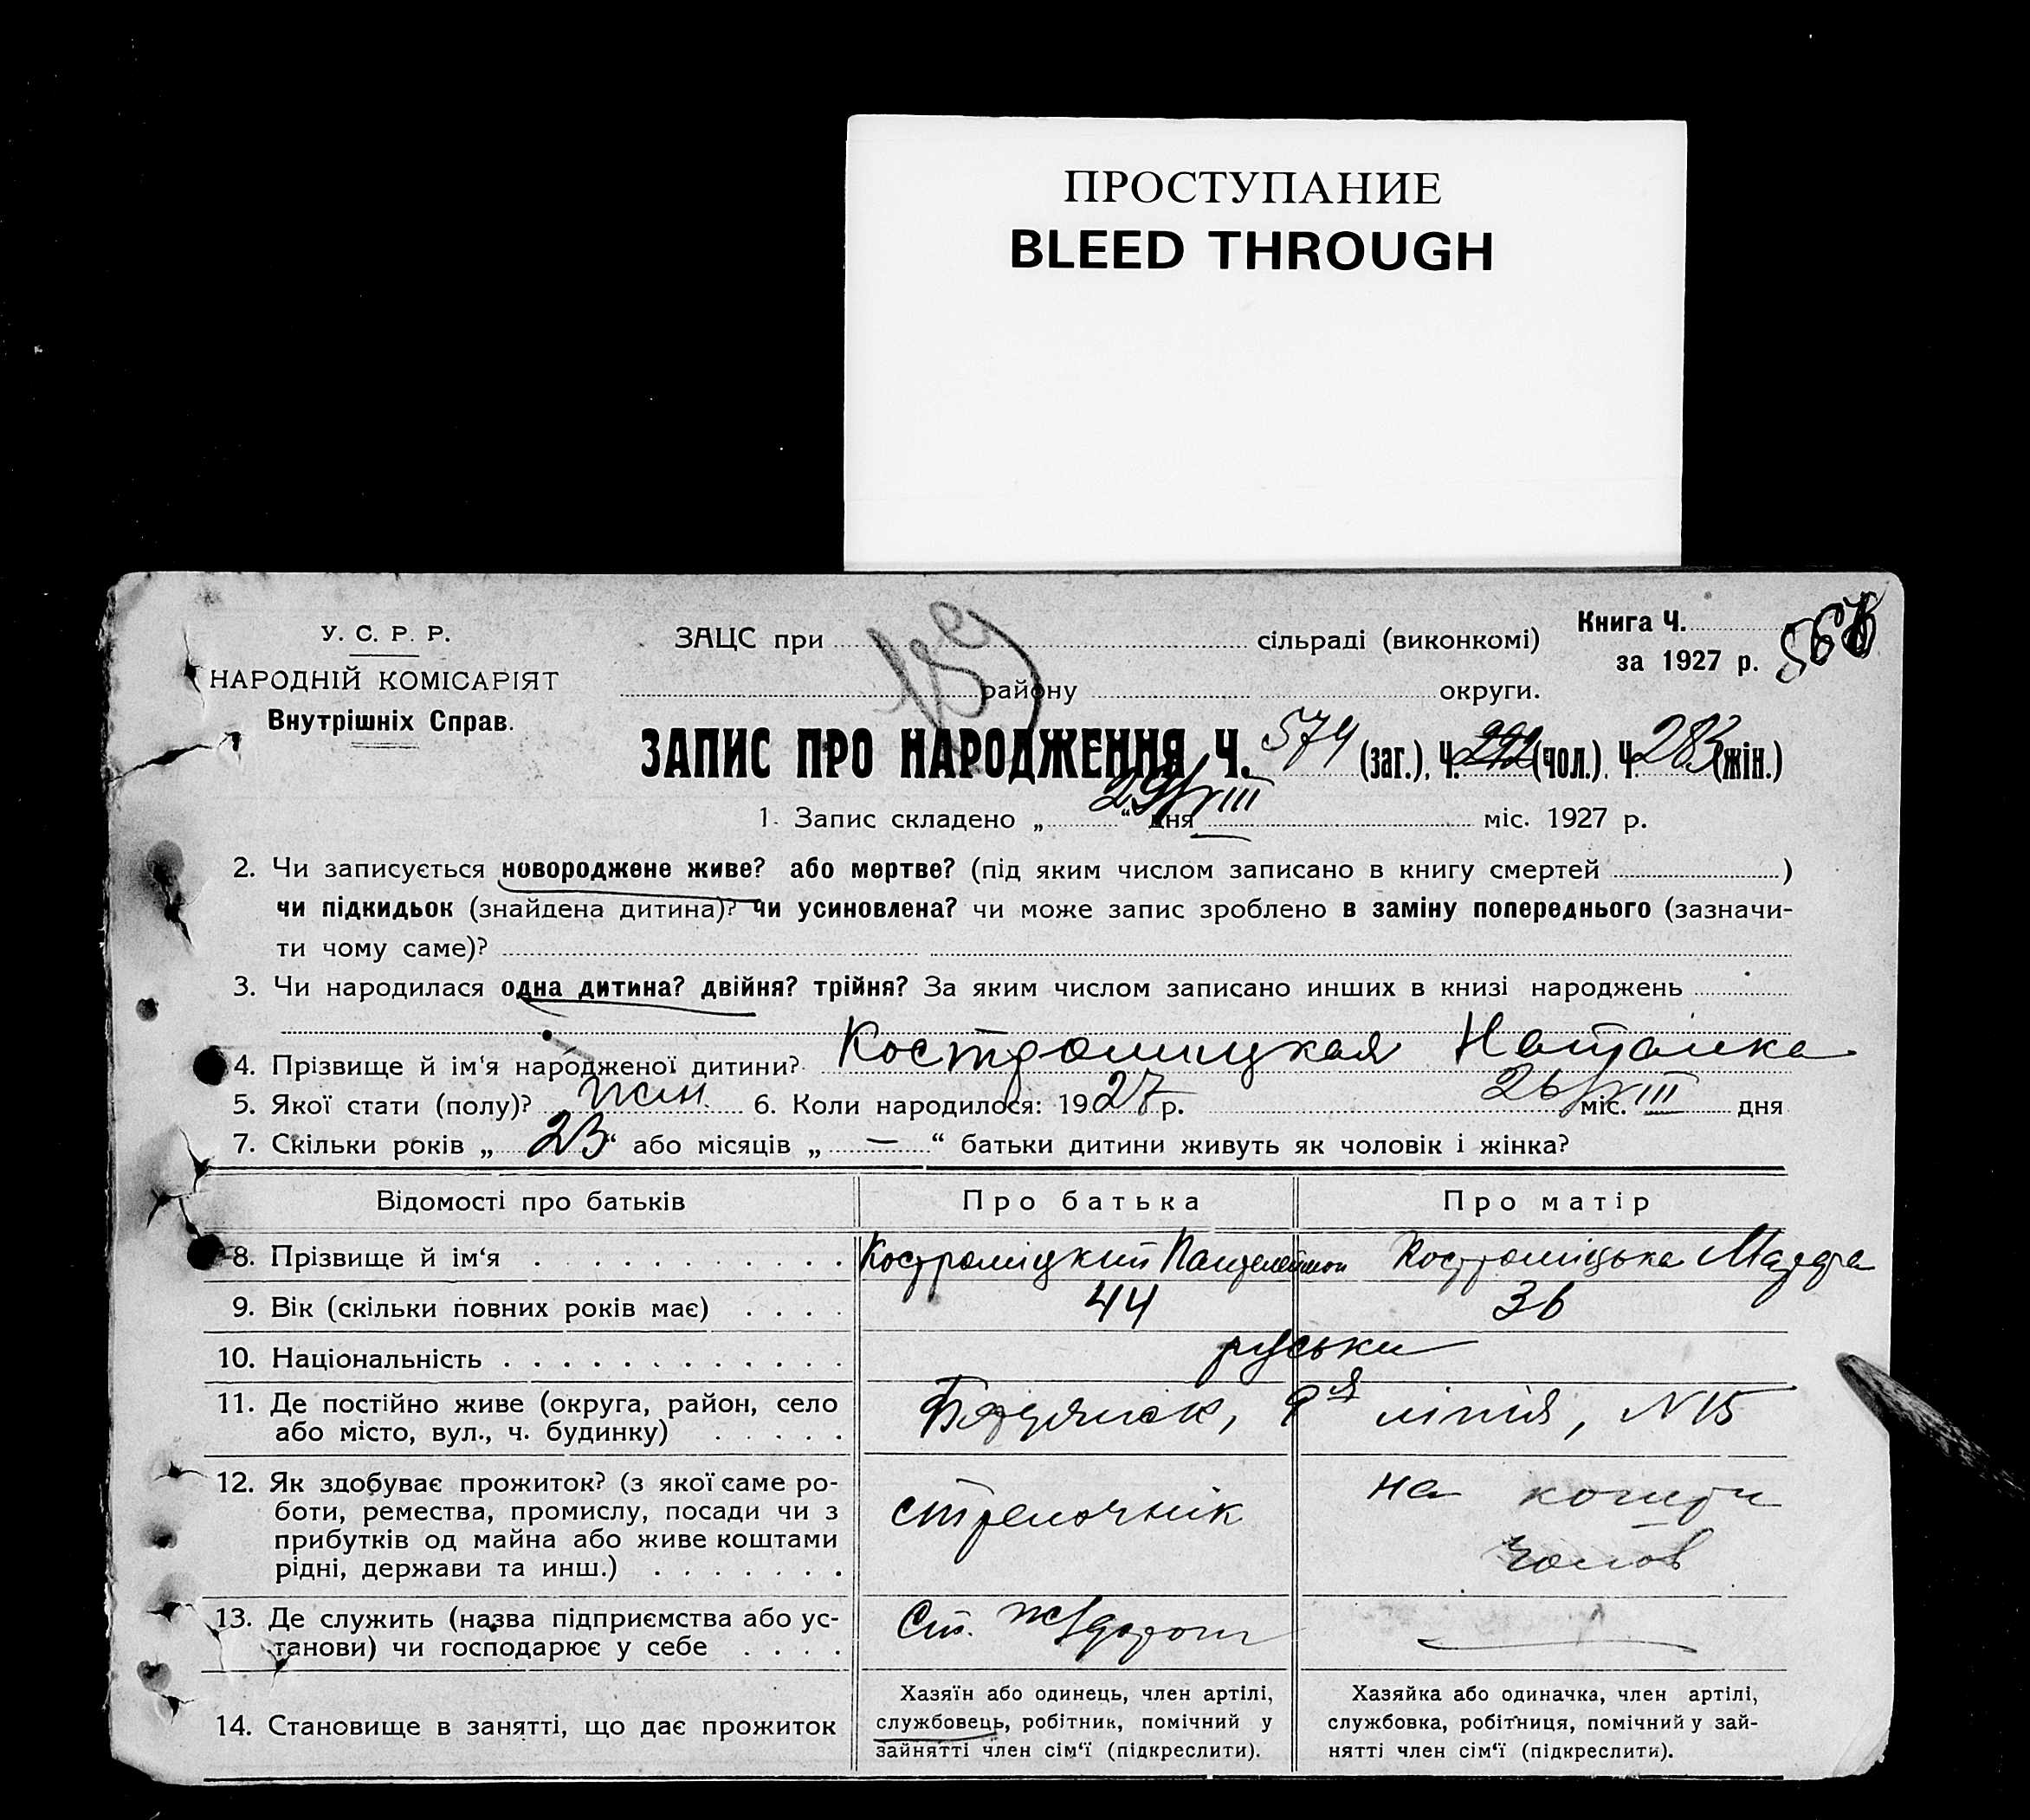 ПРОСТУПАНИЕ
BLEED THROUGH
У. С. Р. Р.
НАРОДНІЙ КОМІСАРІЯТ
Внутрішніх Справ.
ЗАЦС при сільраді (виконкомі)
району округи.
Книга Ч.
за 1927 р.
ЗАПИС ПРО НАРОДЖЕННЯ Ч. 574 (заг.), Ч. 292 (чол.), Ч. 283 (жін.)
1. Запис складено „ 29/VIII “ дня міс. 1927 р.
2. Чи записується новороджене живе? або мертве? (під яким числом записано в книгу смертей )
чи підкидьок (знайдена дитина)? чи усиновлена? чи може запис зроблено в заміну попереднього (зазначи-
ти чому саме)?
3. Чи народилася одна дитина? двійня? трійня? За яким числом записано инших в книзі народжень
4. Прізвище й ім'я народженої дитини? Костромицкая Наталка
5. Якої стати (полу)? жін. 6. Коли народилося: 1927 р. 26/VIII міс. дня
7. Скільки років „ 23 “ або місяців „ — “ батьки дитини живуть як чоловік і жінка?
Відомості про батьків Про батька Про матір
8. Прізвище й ім'я Костроміцкий Пантелеймон Костроміцька
9. Вік (скільки повних років має) 44 36
10. Національність руськи
11. Де постійно живе (округа, район, село
або місто, вул., ч. будинку)
Бердянськ, 9ая лінія, N 15
12. Як здобуває прожиток? (з якої саме ро-
боти, ремества, промислу, посади чи з
прибутків од майна або живе коштами
рідні, держави та инш.)
стрелочнік
на кошти
чолов
13. Де служить (назва підприємства або ус-
танови) чи господарює у себе
Ст. ж/дороги
14. Становище в занятті, що дає прожиток
Хазяїн або одинець, член артілі,
службовець, робітник, помічний у
зайнятті член сім'ї (підкреслити).
Хазяйка або одиначка, член артілі,
службовка, робітниця, помічний у зай-
нятті член сім'ї (підкреслити).